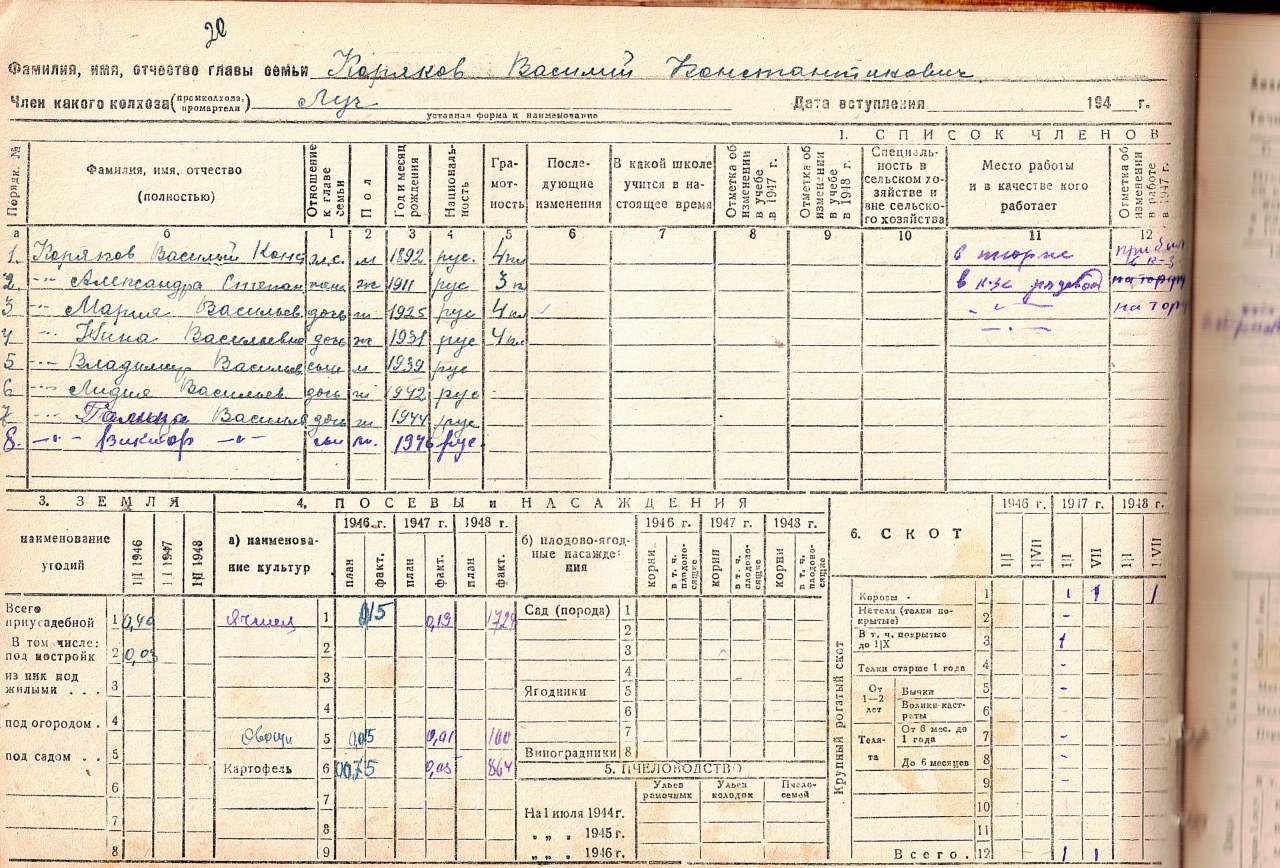 20
Фамилия, имя, отчество главы семьи Коряков Василий Константинович
Член какого колхоза (промколхоза, промартели) Луч Дата вступления 194 г.
уставная форма и наименование
I. СПИСОК ЧЛЕНОВ
Порядк. № Фамилия, имя, отчество (полностью) Отношение к главе семьи Пол Год и месяц рождения Националь-ность Гра-мот-ность После-дующие изменения В какой школе учится в на-стоящее время Отметка об изменении в учебе в 1947 г. Отметка об изменении в учебе в 1948 г. Специаль-ность в сельском хо-зяйстве и вне сельско-го хозяйства Место работы и в качестве кого работает Отметка об изменении в работе в 1947 г.
а б 1 2 3 4 5 6 7 8 9 10 11 12
1. Коряков Василий Конс г.с. м 1892 рус. 4 кл в
2. -"- Александра Степан жена ж 1911 рус 3 к в к-зе рядовой
3 -"- Мария Васильев дочь ж 1925 рус 4 кл - " - на тор
4 -"- Нина Васильевна дочь ж 1931 рус 4 кл - " -
5 -"- Владимир Васильев сын м 1939 рус
6 -"- Лидия Васильев дочь ж 1942 рус
7 -"- Галина Василь дочь ж 1944 рус
8. -"- Виктор -"- сын м. 1946 рус.
3. ЗЕМЛЯ 4. ПОСЕВЫ и НАСАЖДЕНИЯ
наименование угодий 1|I 1946 1|I 1947 1|I 1948
а) наименова-ние культур 1946 г. 1947 г. 1948 г.
план факт. план факт. план факт.
б) плодово-ягод-ные насажде-ния 1946 г. 1947 г. 1948 г.
корни в т. ч. плодоно-сящие корни в т. ч. плодоно-сящие корни в т. ч. плодоно-сящие
6. СКОТ 1946 г. 1947 г. 1948 г.
1|I 1|VII 1|I VII 1|I 1 VII
Всего приусадебной 1 0,40
В том числе: под постройк 2 0,03
из них под жилыми . . . 3
под огородом . 4
под садом . . 5
6
7
8
Ячмень 1 0,15 0,19 172
2
3
4
Овощи 5 0,05 0,01 100
Картофель 6 0,05 864
7
8
9
Сад (порода) 1
2
3
Ягодники 5
6
7
Виноградники 8
5. ПЧЕЛОВОДСТВО
Ульев рамочных Ульев колодок Пчело-семей
На 1 июля 1944 г.
„ „ „ 1945 г.
„ „ „ 1946 г.
Крупный рогатый скот
Коровы - 1 1 1 1
Нетели (телки по-крытые) 2 -
В т. ч. покрытые до 1|IX 3 1
Телки старше 1 года 4 -
От 1—2 лет Бычки 5 -
Волики-каст-раты 6 -
Теля-та От 6 мес. до 1 года 7 -
До 6 месяцев 8 -
9 -
10
11
Всего. 12 1 1